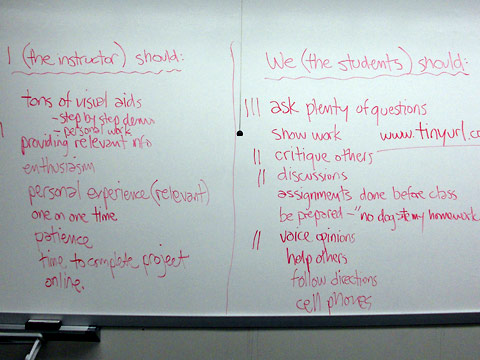 I (the instructor) should:
tons of visual aids
- step by step demos
- personal work
providing relevant info
enthusiasm
personal experience (relevant)
one on one time.
patience
time to complete project
online.
We (the students) should:
||| ask plenty of questions
show work www.tinyurl.co
|| critique others
|| discussions
assignments done before class
be prepared - "no dog ate my homework
|| voice opinions
help others
follow directions
cell phones